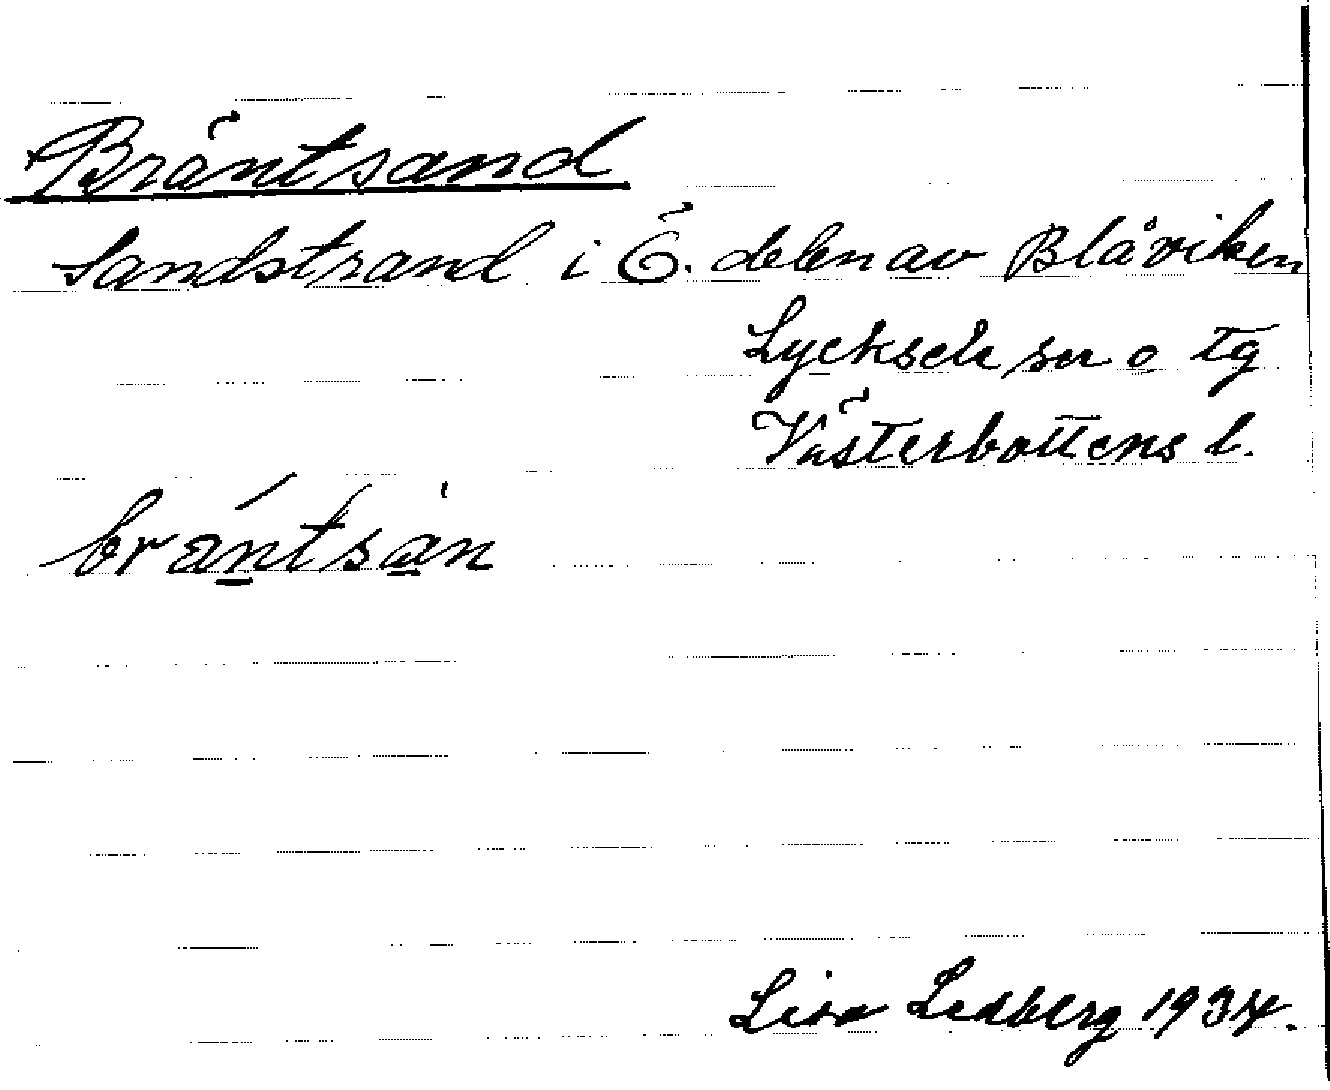 Bräntsand
Sandstrand i Ö. delen av Blåviken
Lycksele sn o tg
Västerbottens l.
bräntsan
Lisa Lidberg 1934.